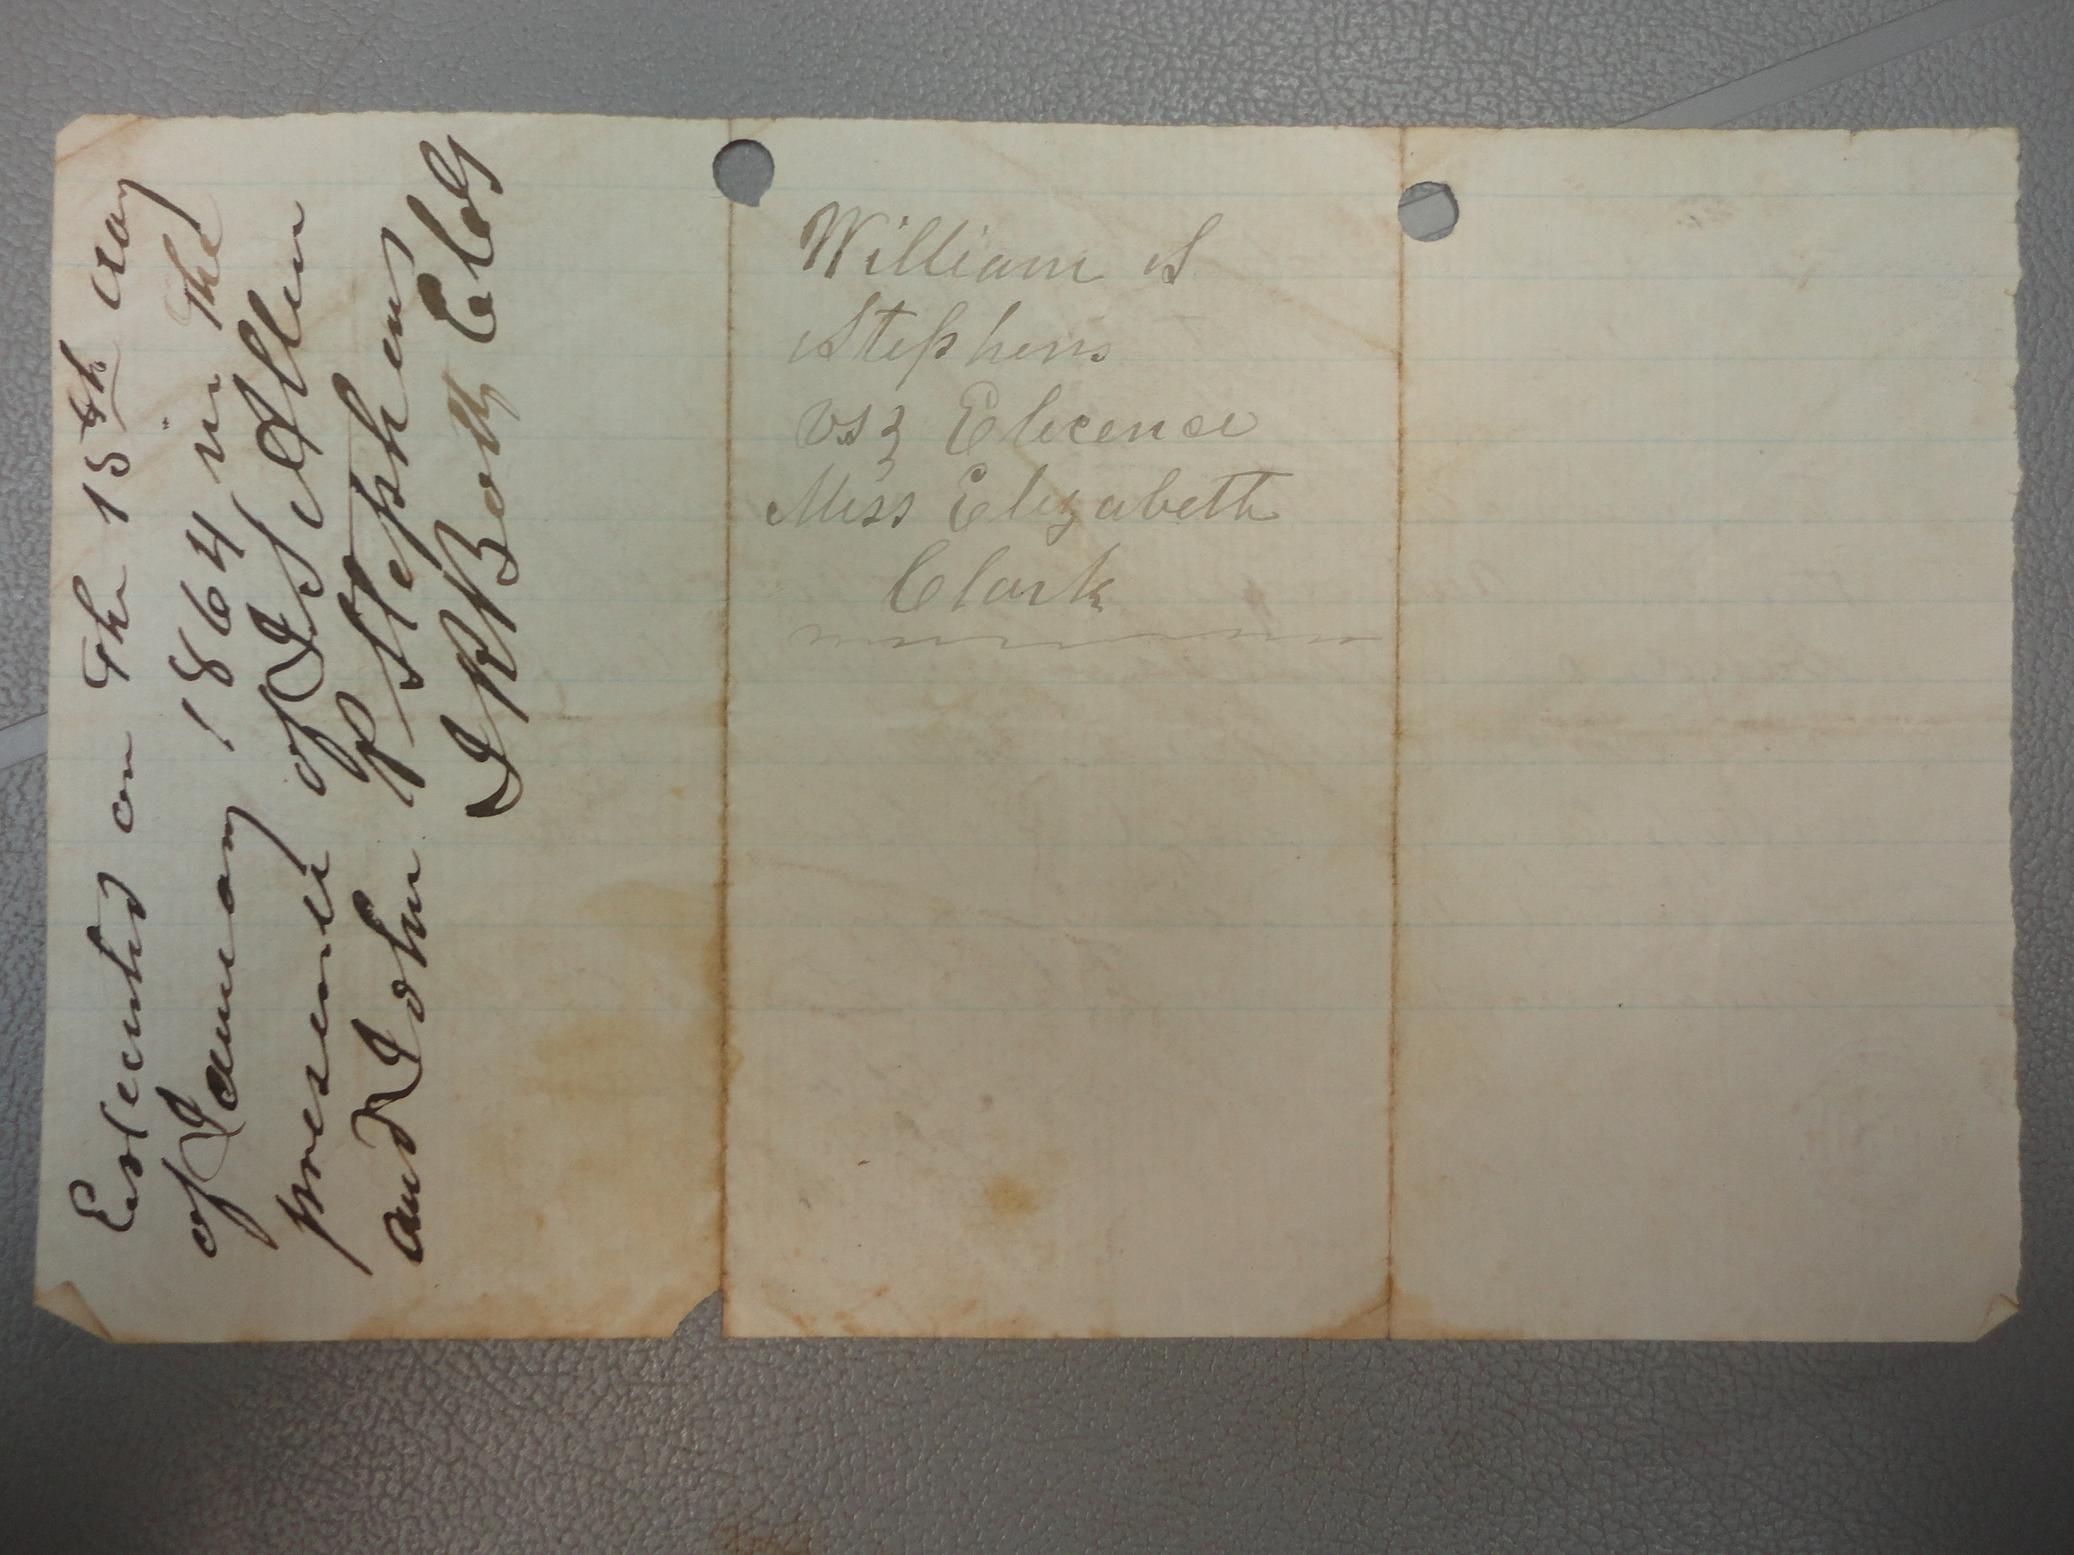 Exlecuted on the 15th day
of January 1864 in the
presence of J S Allen
and John R Stephens
J R Botts Elds
William S
Stephens
vs } Elicence
Miss Elizabeth
Clark